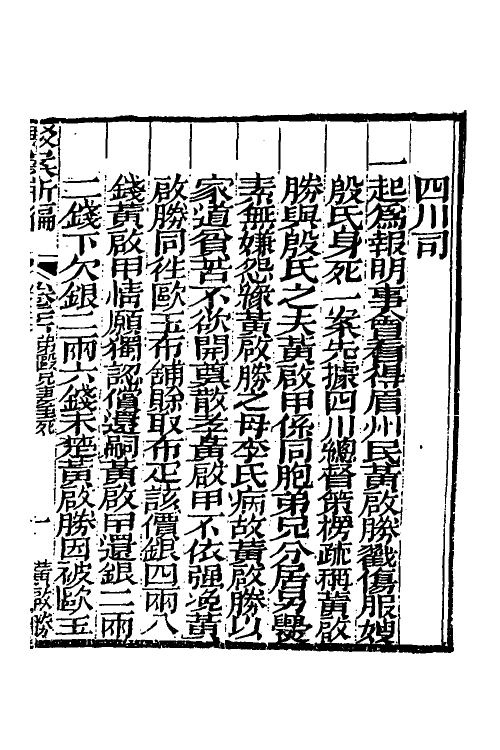 四川司
一起爲報明事會看得眉州民黃啟勝戳傷服嫂
殷氏身死一案先據四川總督策楞疏稱黃啟
勝與殷氏之夫黃啟甲係同胞弟兄分居另㸑
素無嫌怨緣黃啟勝之母李氏病故黃啟勝以
家道貧苦不欲開奠散孝黃啟甲不依强挽黃
啟勝同徃歐玉布鋪賒取布疋該價銀四兩八
錢黃啟甲情願獨認償還嗣黃啟甲還銀二兩
二錢下欠銀二兩六錢未楚黃啟勝因被歐玉
駁案新編 弟毆兄妻至死 一 黃啟勝